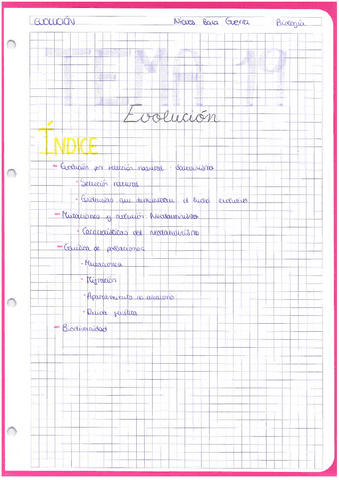 EVOLUCIÓN Nieves Guerra Biología
TEMA 19
Evolución
ÍNDICE
- Evolución por selección natural: darwinismo
· Selección natural
· Evidencias que demuestran el hecho evolutivo
- Mutaciones y evolución. Neodarwinismo
· Características del neodarwinismo
- Genética de poblaciones
· Mutaciones
· Migración
· Apareamiento no aleatorio
· Deriva genética
- Biodiversidad